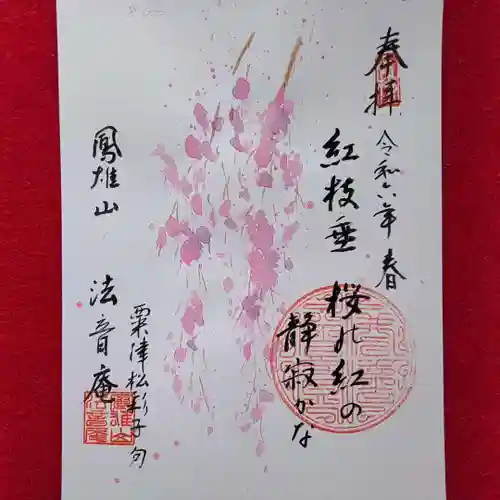 奉拝
令和六年春
紅枝垂 桜の紅の
静寂かな
粟津松彩子句
鳳雄山 法音庵